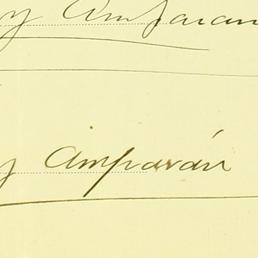 y Amparan
y Amparán